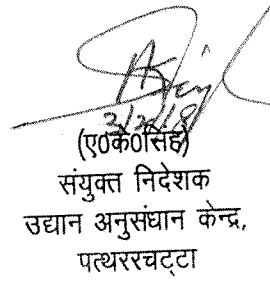 (ए0के0सिंह)
संयुक्त निदेशक
उद्यान अनुसंधान केन्द्र,
पत्थररचट्टा